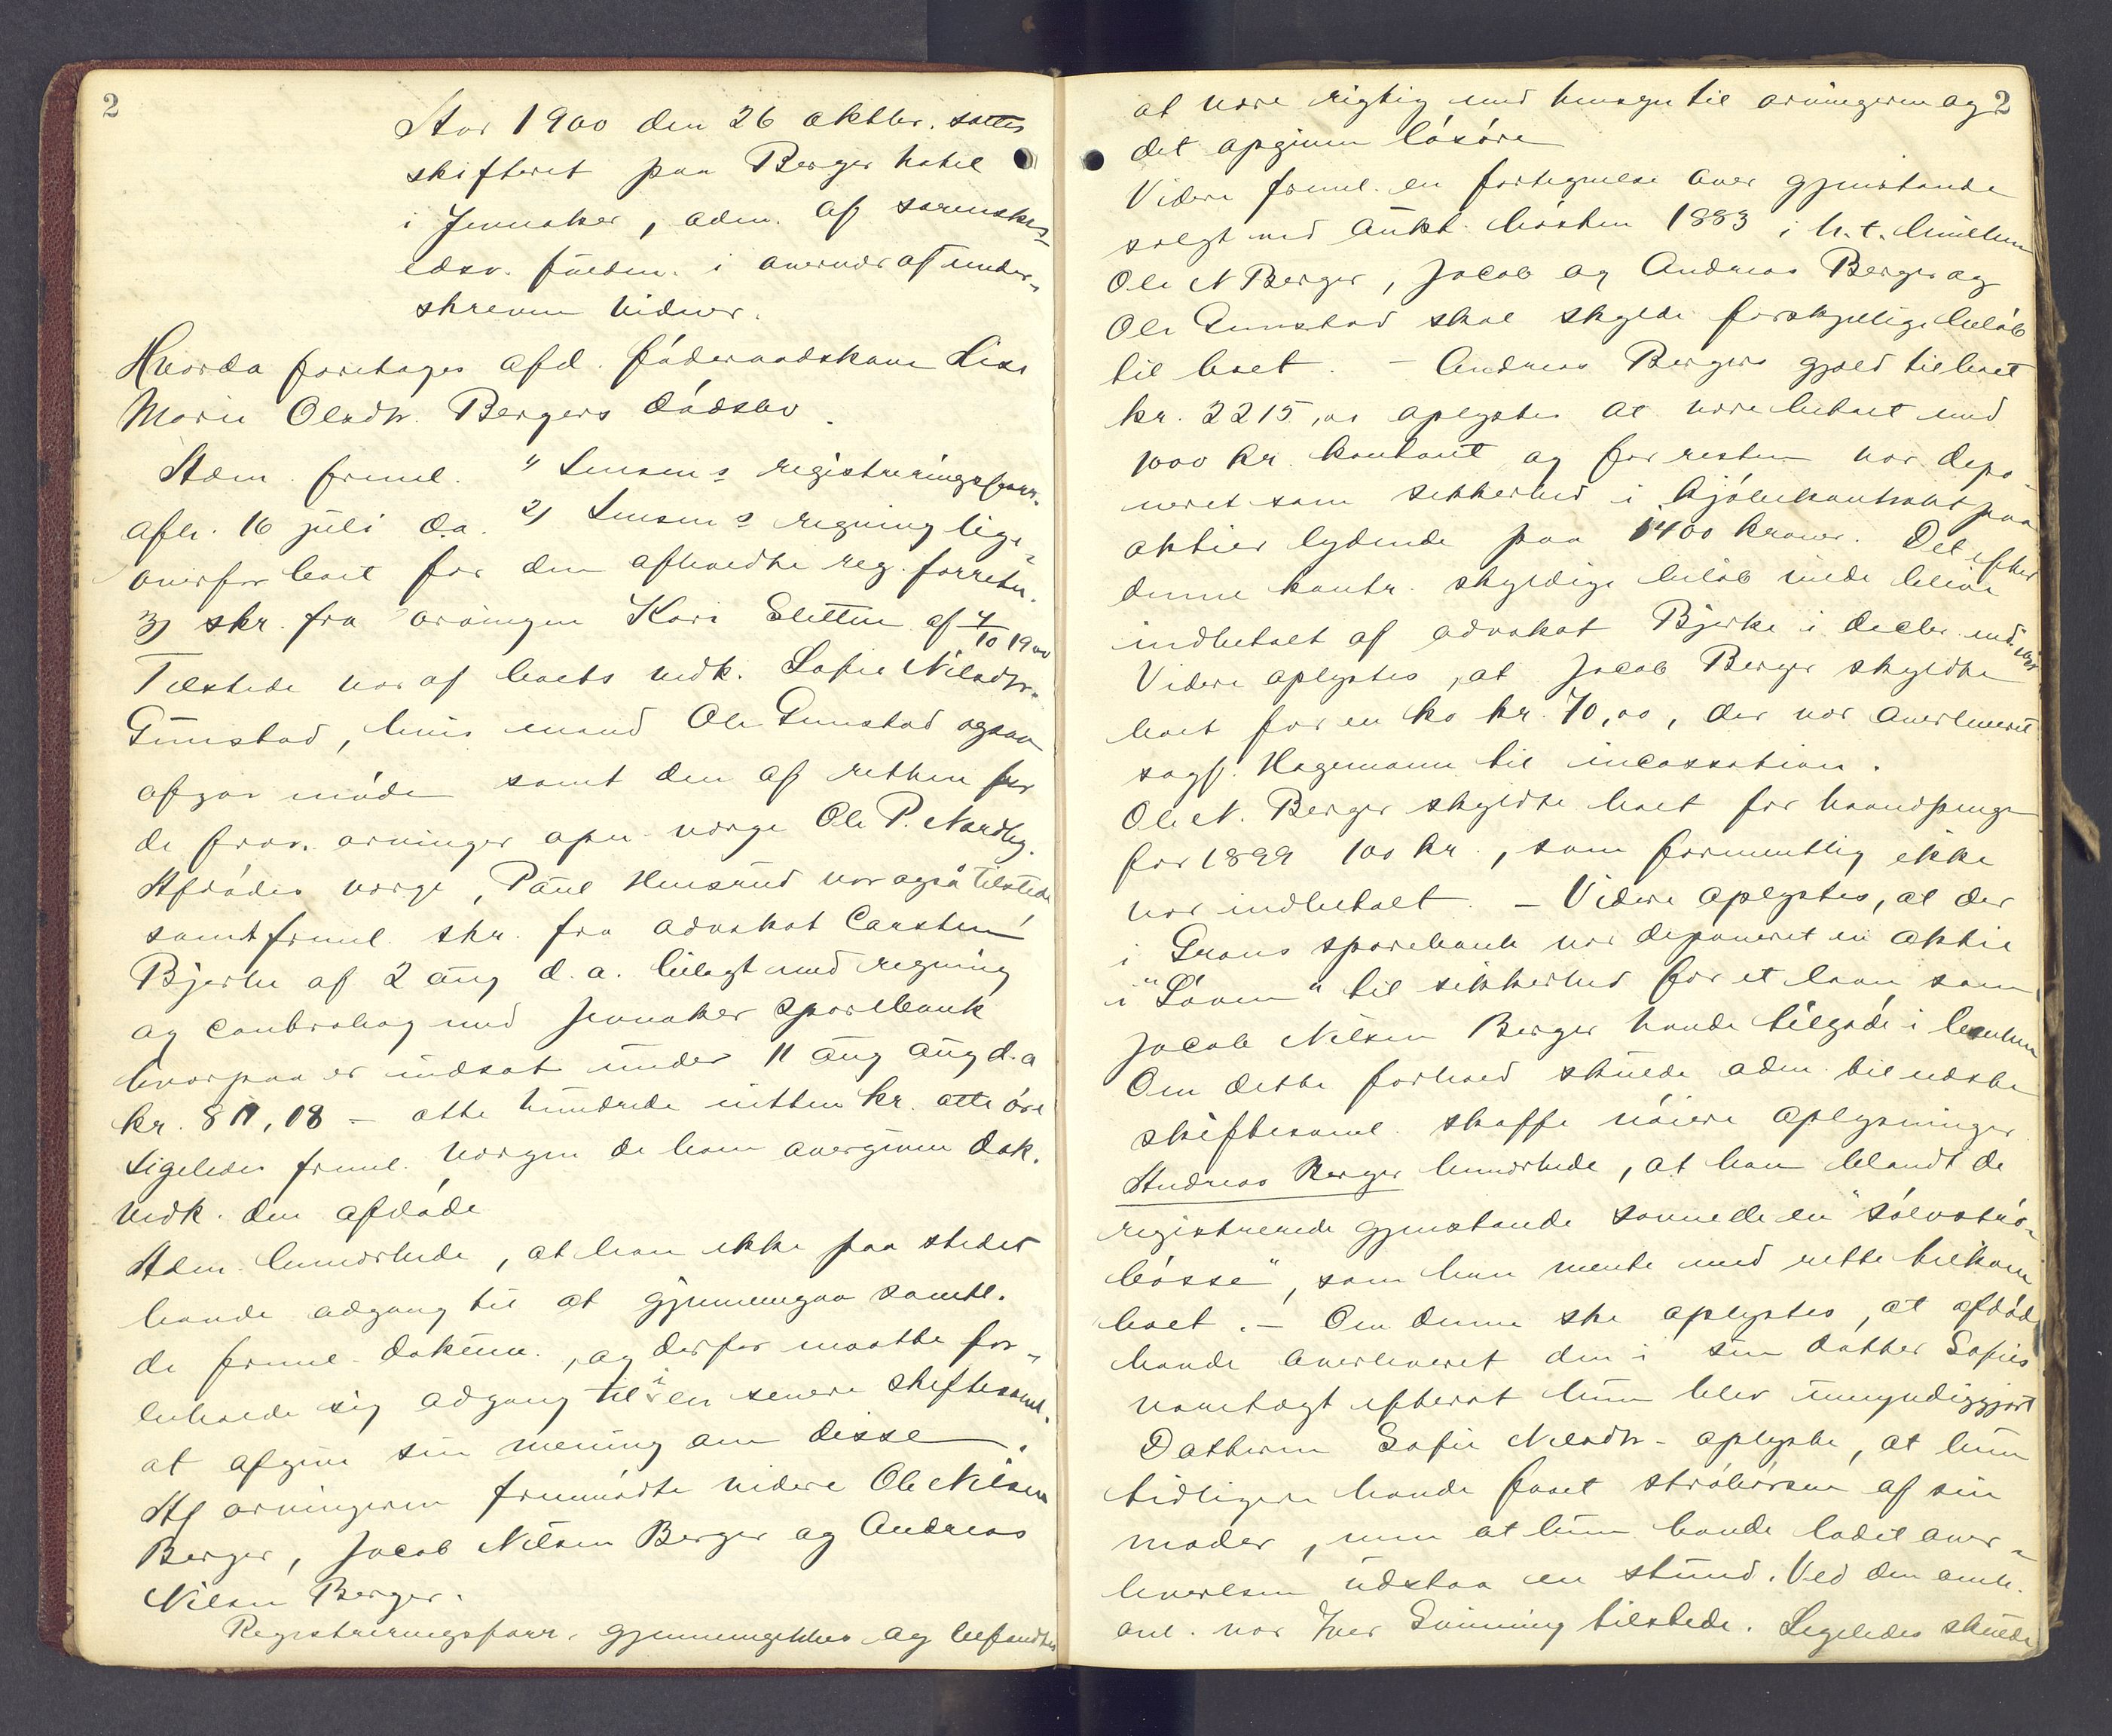 2
Aar 1900 den 26 oktbr. sattes
skifteret paa Berger hotel
i Jevnaker, adm. af sorenskr.-
edsv. fuldm. i overvær af under-
skrevne vidner.
Hvorda foretages afd. føderaadskone Lise
Marie Olsdtr. Bergers dødsbo.
Adm. freml. 1) Lensm s registreringsforr.
afh. 16 juli d.a. 2) Lensm s regning lige-
overfor boet for den afholdte reg. forretn.
3) skr. fra arvingen Kari Sletten af 4/10 1900
Tilstede var af boets vedk. Sofie Nilsdtr.
Gunstad, hvis mand Ole Gunstad ogsaa
afgav møde samt den af retten for
de frav. arvinger opn. værge Ole P. Nordby.
Afdødes værge, Paul Hensrud var også tilstede
samt freml. skr. fra advokat Carsten
Bjerke af 2 aug d.a. bilagt med regning
og contrabog med Jevnaker Sparebank
hvorpaa er indsat under 11 aug d.a
kr. 819,08 - otte hundrede nitten kr. otte øre
Ligeledes freml. værgen de ham overgivne dok.
vedk. den afdøde
Adm. bemærkede, at han ikke paa stedet
havde adgang til at gjennemgaa samtl.
de freml. dokum., og derfor maatte for-
beholde sig adgang til i en senere skiftesaml.
at afgive sin mening om disse.
Af arvingerne fremmødte videre Ole Nilsen
Berger, Jacob Nilsen Berger og Andreas
Nilsen Berger.
Registreringsforr. gjennemgikkes og befandtes
2
at være rigtig med hensyn til arvingerne og
det opgivne løsøre
Videre freml. en fortegnelse over gjenstande
solgt ved aukt. høsten 1883 i h.t. hvilken
Ole N Berger, Jacob og Andreas Berger og
Ole Gunstad skal skylde forskjellige beløb
til boet. - Andreas Bergers gjæld til boet
kr. 2215,00 oplystes at være betalt med
1000 kr. kontant og for resten var depo-
neret som sikkerhed i kjøbekontrakt paa
aktier lydende paa 1400 kroner. Det efter
denne kontr. skyldige beløb vilde blive
indbetalt af advokat Bjerke i decbr. md.
Videre oplystes, at Jacob Berger skyldte
boet for en ko kr. 70,00, der var overleveret
sagf. Hagemann til incassation.
Ole N. Berger skyldte boet for haandpenge
for 1899 100 kr., som formentlig ikke
var indbetalt. - Videre oplystes, at der
i Grans sparebank var deponeret en aktie
i "Løven" til sikkerhed for et laan, som
Jacob Nilsen Berger havde tilgode i banken
Om dette forhold skulde adm. til næste
skiftesaml. skaffe nøiere oplysninger
Andreas Berger bemærkede, at han blandt de
registrerede gjenstande savnede en "sølvstrø-
bøsse", som han mente med rette tilkom
boet. - Om denne ske oplystes, at afdøde
havde overleveret den i sin datter Sofies
varetægt efterat hun blev umyndiggjort
Datteren Sofie Nilsdtr. oplyste, at hun
tidligere havde faaet strøbøssen af sin
moder, men at hun havde ladet over-
leverelsen udstaa en stund. Ved den omh.
anl. var Iver Svinning tilstede. Ligeledes skulde